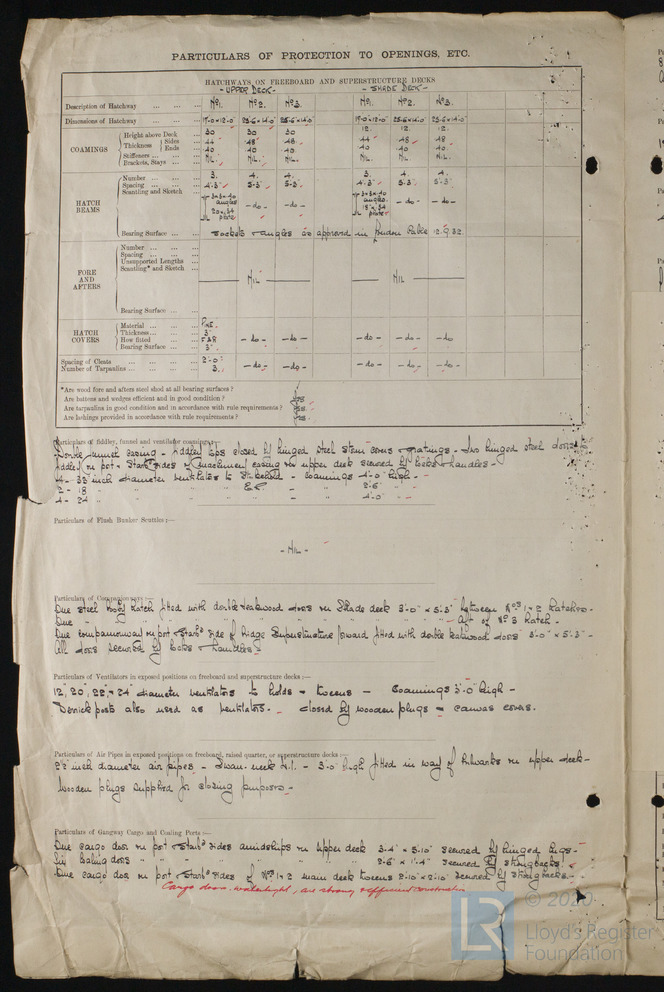 PARTICULARS OF PROTECTION TO OPENINGS, ETC.
HATCHWAYS ON FREEBOARD AND SUPERSTRUCTURE DECKS
- UPPER DECK - - SHADE DECK -
Description of Hatchway ... ... ... No1. No2. No3. No1. No2. No3.
Dimensions of Hatchway ... ... ... 19-0 x 12-0 25-6 x 14-0 25-6 x 14-0 19-0 x 12-0 25-6 x 14-0 25-6 x 14-0
COAMINGS
Height above Deck ... 30 30 30 12. 12. 12.
Thickness Sides ... 44 48 48 44 48 48
Ends ... 40 40 40 40 40 40
Stiffeners ... ... ...
Brackets, Stays ... ... NIL. NIL. NIL. NIL. NIL. NIL.
HATCH BEAMS
Number ... ... ... 3. 4. 4. 3. 4. 4.
Spacing ... ... ... 4-3" 5-3" 5-3" 4-3" 5-3" 5-3"
Scantling and Sketch
3x3x.40 angles 20x.34 plate - do - - do - 3x3x.40 angles. 18"x.34 plate - do - - do -
Bearing Surface ... ... Sockets & angles as approved in London Pal 12.9.32.
FORE AND AFTERS
Number ... ... ...
Spacing ... ... ...
Unsupported Lengths ...
Scantling* and Sketch ...
NIL NIL
Bearing Surface ... ...
HATCH COVERS
Material ... ... ... PINE.
Thickness ... ... ... 3"
How fitted ... ... F&A - do - - do - - do - - do - - do
Bearing Surface ... ... 3".
Spacing of Cleats ... ... ... ... 2'-0"
Number of Tarpaulins ... ... ... ... 3. - do - - do - - do - - do - - do -
*Are wood fore and afters steel shod at all bearing surfaces ?
Are battens and wedges efficient and in good condition ? Yes
Are tarpaulins in good condition and in accordance with rule requirements ? Yes
Are lashings provided in accordance with rule requirements ? Yes
Particulars of fiddley, funnel and ventilator coamings:—
Double funnel casing - fiddley tops closed by hinged steel storm covers & gratings. - Two hinged steel doors to
fiddley on port & Starbd sides of machinery casing on upper deck secured by locks & handles. -
4 - 33 inch diameter ventilators to Stokehold - Coamings 4'-0" high. -
2 - 18 " " " " E.R. " 2-6 " -
4 - 24 " " " " " " 4-0 " -
Particulars of Flush Bunker Scuttles :—
- NIL -
Particulars of Companionways :—
One steel booby hatch fitted with double teakwood doors on Shade deck 3'-0" x 5'-3" between Nos 1 & 2 hatches. -
One " " " " " " " " " " - Aft of No 3 hatch. -
One companionway on port & Starbd side of bridge superstructure forward fitted with double teakwood doors 3'-0" x 5'-3" -
All doors secured by locks & handles. -
Particulars of Ventilators in exposed positions on freeboard and superstructure decks :—
12, 20", 22", & 24" diameter ventilators to holds & tweens - Coamings 3'-0 high -
Derrick posts also used as ventilators. - Closed by wooden plugs & canvas covers.
Particulars of Air Pipes in exposed positions on freeboard, raised quarter, or superstructure decks :—
2½ inch diameter air pipes - Swan-neck W.I. - 3'-0" high fitted in way of bulwarks on upper deck -
Wooden plugs supplied for closing purposes. -
Particulars of Gangway Cargo and Coaling Ports :—
One cargo door on port & Starbd sides amidships on upper deck 3-4" x 3-10" secured by hinged lugs. -
Six coaling doors " " " " " " " 2-6" x 1'-4" secured by strongbacks.
One cargo door on port & Starbd sides of Nos 1 & 2 main deck tweens 2-10" x 2-10" secured by strongbacks. -
Cargo doors watertight, are strong & efficient construction
© 2020
Lloyd's Register
Foundation
LR